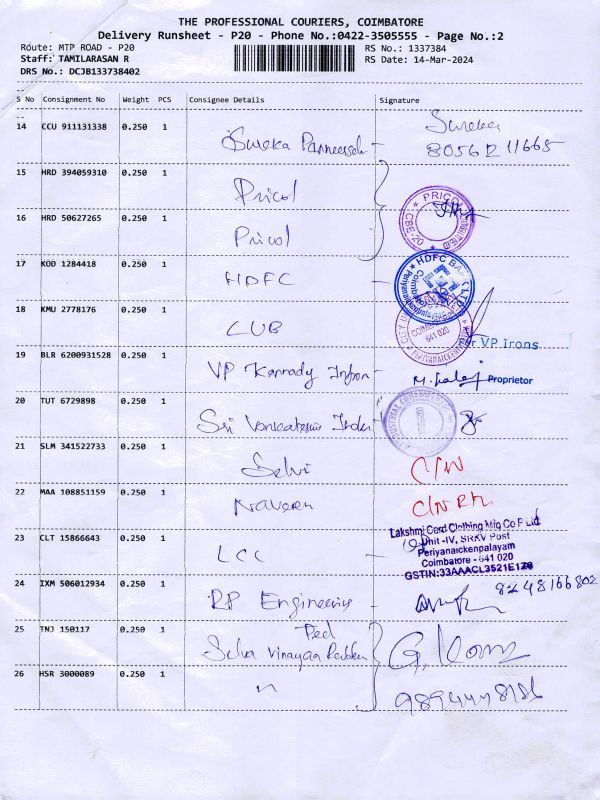 THE PROFESSIONAL COURIERS, COIMBATORE
Delivery Runsheet - P20 - Phone No.:0422-3505555 - Page No.:2
Route: MTP ROAD - P20 RS No.: 1337384
Staff: TAMILARASAN R RS Date: 14-Mar-2024
DRS No.: DCJB133738402
S No Consignment No Weight PCS Consignee Details Signature
14 CCU 911131338 0.250 1
15 HRD 394059310 0.250 1 Pricol
16 HRD 50627265 0.250 1 Pricol
17 KOD 1284418 0.250 1 HDFC
18 KMU 2778176 0.250 1 CUB
for VP Irons
19 BLR 6200931528 0.250 1 VP Proprietor
20 TUT 6729898 0.250 1 Sri
21 SLM 341522733 0.250 1 Selvi
22 MAA 108851159 0.250 1 Naveen
23 CLT 15866643 0.250 1 LCC
Lakshmi Card Clothing Mfg Co P Ltd
Unit -IV, SRKV Post
Periyanaickenpalayam
Coimbatore - 641 020
GSTIN:33AAACL3521E1Z6
24 IXM 506012934 0.250 1 RP Engineering 8248166802
25 TNJ 150117 0.250 1
26 HSR 3000089 0.250 1 "